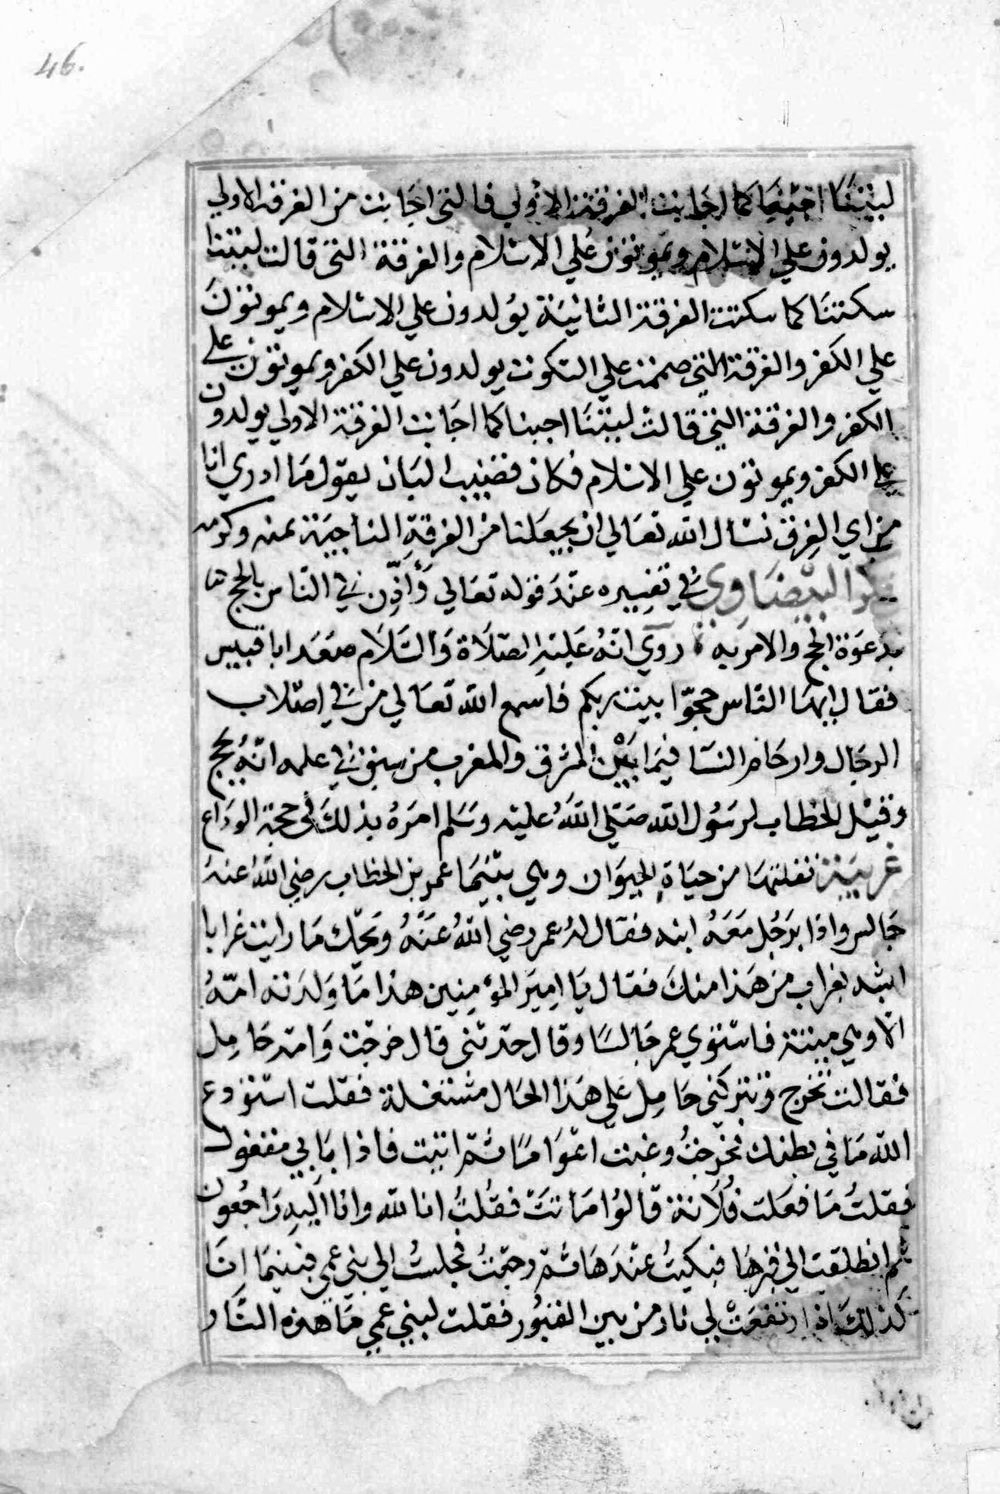 46.
ليتنا اجبنا كما اجابت الفرقة الاولي فالتي اجابت من الفرقة الاولي
يولدون علي الاسلام ويموتون علي الاسلام والفرقة التي قالت ليتنا
سكتنا كما سكتت الفرقة الثانية يولدون علي الاسلام ويموتون
علي الكفر والفرقة التي صممت علي السكوت يولدون علي الكفر ويموتون علي
الكفر والفرقة التي قالت ليتنا اجبنا كما اجابت الفرقة الاولي يولدون
علي الكفر ويموتون علي الاسلام فكان قضيب البان يقول ما ادري انا
من اي الفرق نسال الله تعالي ان يجعلنا من الفرقة الناجية بمنه وكرمه
البيضاوي في تفسيره عند قوله تعالي وَأَذِّن في الناس بالحج
بدعوة الحج والامر به روي انه عليه الصلاة والسلام صعد ابا قبيس
فقال ايها الناس حجوا بيت ربكم فاسمع الله تعالي من في اصلاب
الرجال وارحام النسا فيما بين المشرق والمغرب من سبق في علمه انه يحج
وقيل الخطاب لرسول الله صلي الله عليه وسلم امره بذلك في حجة الوداع
غريبة نقلتها من حياة الحيوان وهي بينما عمر بن الخطاب رضي الله عنه
جالس واذا برجل معه ابنه فقال له عمر رضي الله عنه ويحك ما رايت غرابا
اشبه بغراب من هذا منك فقال يا امير المؤمنين هذا ما ولدته امه
الا وهي ميتة فاستوي عمر جالسا وقال حدثني قال خرجت وامه حامل
فقالت تخرج وتتركني حامل علي هذا الحال مثقلة فقلت استودع
الله ما في بطنك فخرجت وغبت اعواما ثم اتيت فاذا بابي مقفول
فقلت ما فعلت فلانة قالوا ماتت فقلت انا لله وانا اليه راجعون
ثم انطلقت الي قبرها فبكيت عندها ثم رجعت فجلست الي بني عمي فبينما انا
كذلك اذ ارتفعت لي نار من بين القبور فقلت لبني عمي ما هذه النار